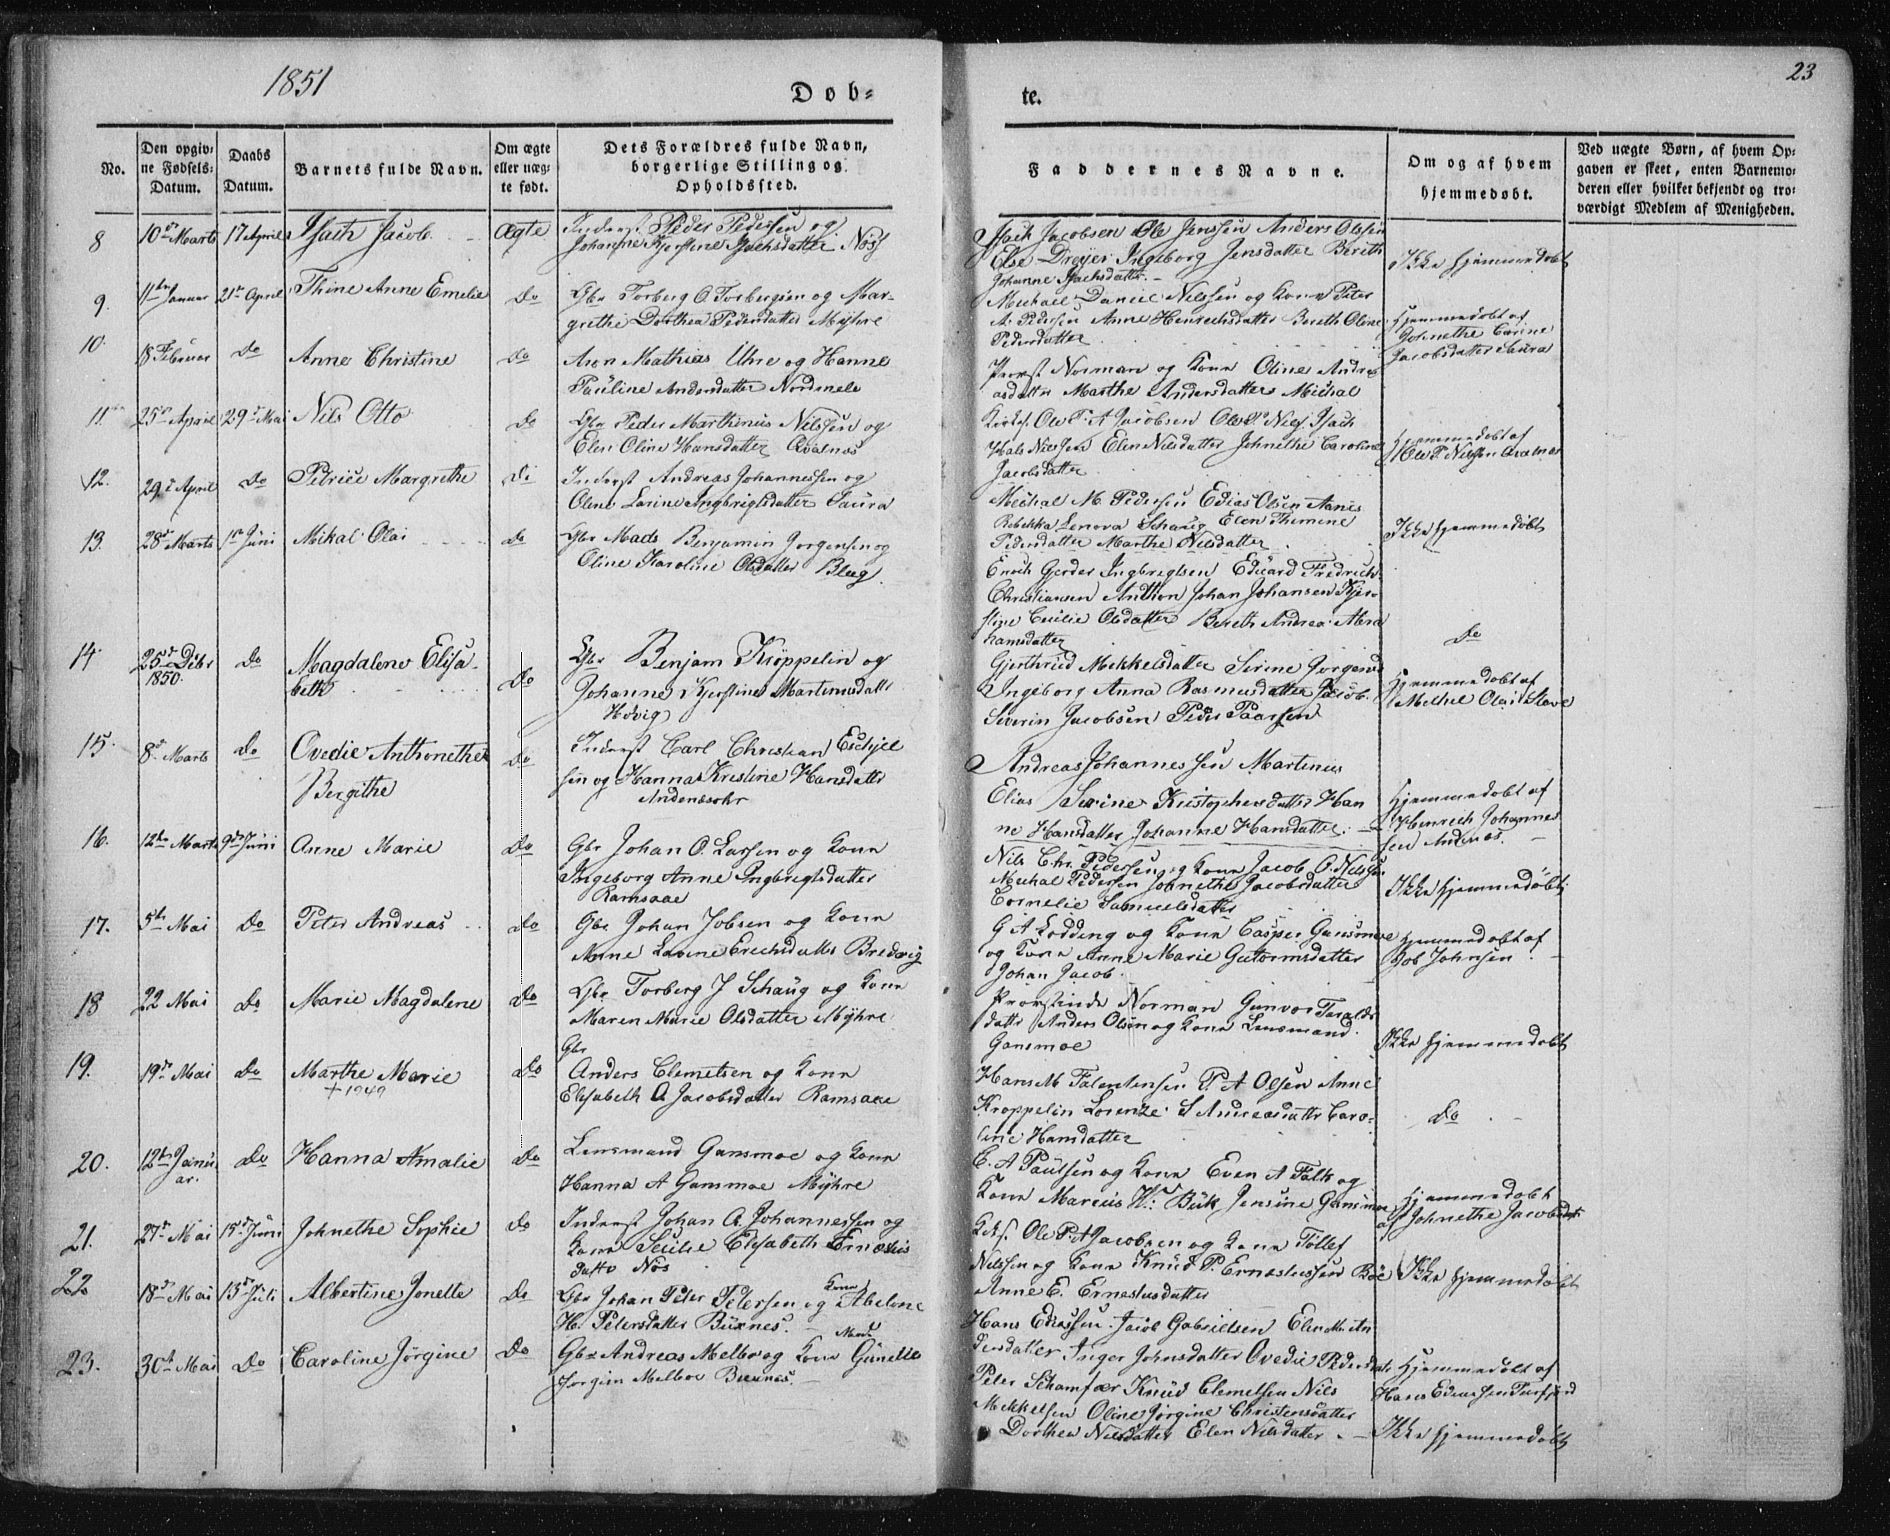 1851
Døb-
te.
23
No.
Den opgiv-
ne Fødsels-
Datum.
Daabs
Datum.
Barnets fulde Navn.
Om ægte
eller uæg-
te født.
Dets Forældres fulde Navn,
borgerlige Stilling og
Opholdssted.
Faddernes Navne.
Om og af hvem
hjemmedøbt.
Ved uægte Børn, af hvem Op-
gaven er skeet, enten Barnemo-
deren eller hvilket bekjendt og tro-
værdigt Medlem af Menigheden.
8 10de Marts 17 April Isach Jacob Ægte Inderst Peder Pedersen og
Johanne Kjerstine Isachsdatter Nøss
Isach Jacobsen Ole Jenssen Anders Olsen
Else Dreyer Ingeborg Jensdatter Bereth
Johanne Isachsdatter
Ikke hjemmedøbt
9. 11te Januar 21de April Thrine Anne Emelie Do Gbr Torberg O. Torbergsen og Mar-
grethe Dorthea Pedersdatter Myhre
Michael Daniel Nilssen og Kone Peter
A. Pedersen Anne Henrichsdatter Bereth Oline
Pedersdatter
Hjemmedøbt af
Johnethe Carine
Jacobsdatter Saura
10. 18 Februar Do Anne Christine Do Aron Mathias Uhre og Hanne
Pauline Andersdatter Nordmele
Provst Norman og Kone Oline Andre
asdatter Marthe Andersdatter Michal
11 25de April 29de Mai Nils Otto Do Gbr Peder Marthinus Nilssen og
Elen Oline Hansdatter Qvalnes
Kirkes. Ole P. A Jacobsen Ole P. Nils. Isach
Hals Nilssen Elen Nilsdatter Johnethe Caroline
Jacobsdatter
Hjemmedøbt af
Ole P. Nilssen Qvalnes
12. 29de April Do Petrice Margrethe Do Inderst Andreas Johannessen og
Oline Larine Ingbrigtsdatter Saura
Michal M. Pedersen Edias Olsen
Rebekka Lenora Schaug Elen Thimine
Pedersdatter Marthe Nilsdatter
Ikke hjemmedøbt
13. 28de Marts 1ste Juni Mikal Olai Do Gbr Mads Benjamin Jorgensen og
Oline Karoline Olsdatter Bleg
Enoch Gerder Ingbrigtsen Eduard Fredrich
Christiansen Anthon Johan Johansen Kjer-
stine Cecilie Olsdatter Bereth Andrea Abra
hamsdatter
Do
14 25de Debr
1850 Do Magdalene Elisa-
beth Do Gbr Benjam Krøppelin og
Johanne Kjerstine Martinusdatter
Hovig
Gjerthried Mekkelsdatter Serine Jorgensd
Ingeborg Anna Rasmusdatter Jacob
Severin Jacobsen Peder Paarsen
Hjemmedøbt af
Mekkel Olai Slave
15. 8de Marts Do Ovedie Anthonethe
Bergithe Do Inderst Carl Christian Eschjel
sen og Hanna Kristine Hansdatter
Andreas Johannessen Martinus
Elias Serine Kristophersdatter Han
ne Hansdatter Johanne Hansdatter
Hjemmedøbt af
Henrech Johannes
sen Andenæs
16. 12te Marts 9de Juni Anne Marie Do Gbr Johan O. Larsen og Kone
Ingeborg Anne Ingbrigtsdatter
Ramsaae
Nils Chr. Pedersen og Kone Jacob O. Nilssen
Michal Pedersen Johnethe Jacobsdatter
Cornelie Samuelsdatter
Ikke hjemmedøbt
17. 5te Mai Do Peter Andreas Do Gbr Johan Jobsen og Kone
Anne Lovine Erichsdatter Bredvig
G A Lødding og Kone Casper Gansmoe
og Kone Anne Marie Gutormsdatter
Johan Jacob
Hjemmedøbt af
Job Johnsen
18 22 Mai Do Marie Magdalene Do Gbr Torberg J Schaug og Kone
Maren Marie Olsdatter Myhre
Provstinde Norman Gunvor Taralds
datter Anders Olsen og Kone Lensmand
Gansmoe
Ikke hjemmedøbt
19. 19de Mai Do Marthe Marie
+ 1949 Do Gbr
Anders Clemetsen og Kone
Elisabeth A Jacobsdatter Ramsaae
Hans M Falentinsen P. A Olsen Anne
Kroppelin Lorenze S Andreasdatter Caro-
line Hansdatter
Do
20. 12te Janu
ar. Do Hanna Amalie Do Lensmand Gansmoe og Kone
Hanna A Gansmoe Myhre
C. A Paulsen og Kone Even A Falk og
Kone Marcus W: Buk Jensine Gansmoe
Hjemmedøbt
af Johnethe Jacobsdatter
21. 27de Mai 15de Juni Johnethe Sophie Do Inderst Johan A. Johannessen og
Kone Secilie Elisabeth Ernestus
datter Nøs
Kirks. Ole P. A Jacobsen og Kone Tollef
Nilssen og Kone Knud P. Ernestussen Bøe
Anne E. Ernestusdatter
Ikke hjemmedøbt
22 18de Mai 13de Juli Albertine Jonette Do Gbr Johan Peter Petersen og Kone Abelone
H. Petersdatter Buxnes.
Hans Ediassen Jacob Gabrielsen Elen M An
dersdatter Inger Johnsdatter Ovedie Pedersdatter
Hjemmedøbt af
Hans Ediassen
23. 30te Mai Do Caroline Jørgine Do Gbr Andreas Melbo og Kone Gunelle
Jørgine Melboe Buxnes.
Peter Schamfær Knud Clemetsen Nils
Mekkelsen Oline Jørgine Christensdatter
Dorthea Nilsdatter Elen Nilsdatter
Ikke hjemmedøbt